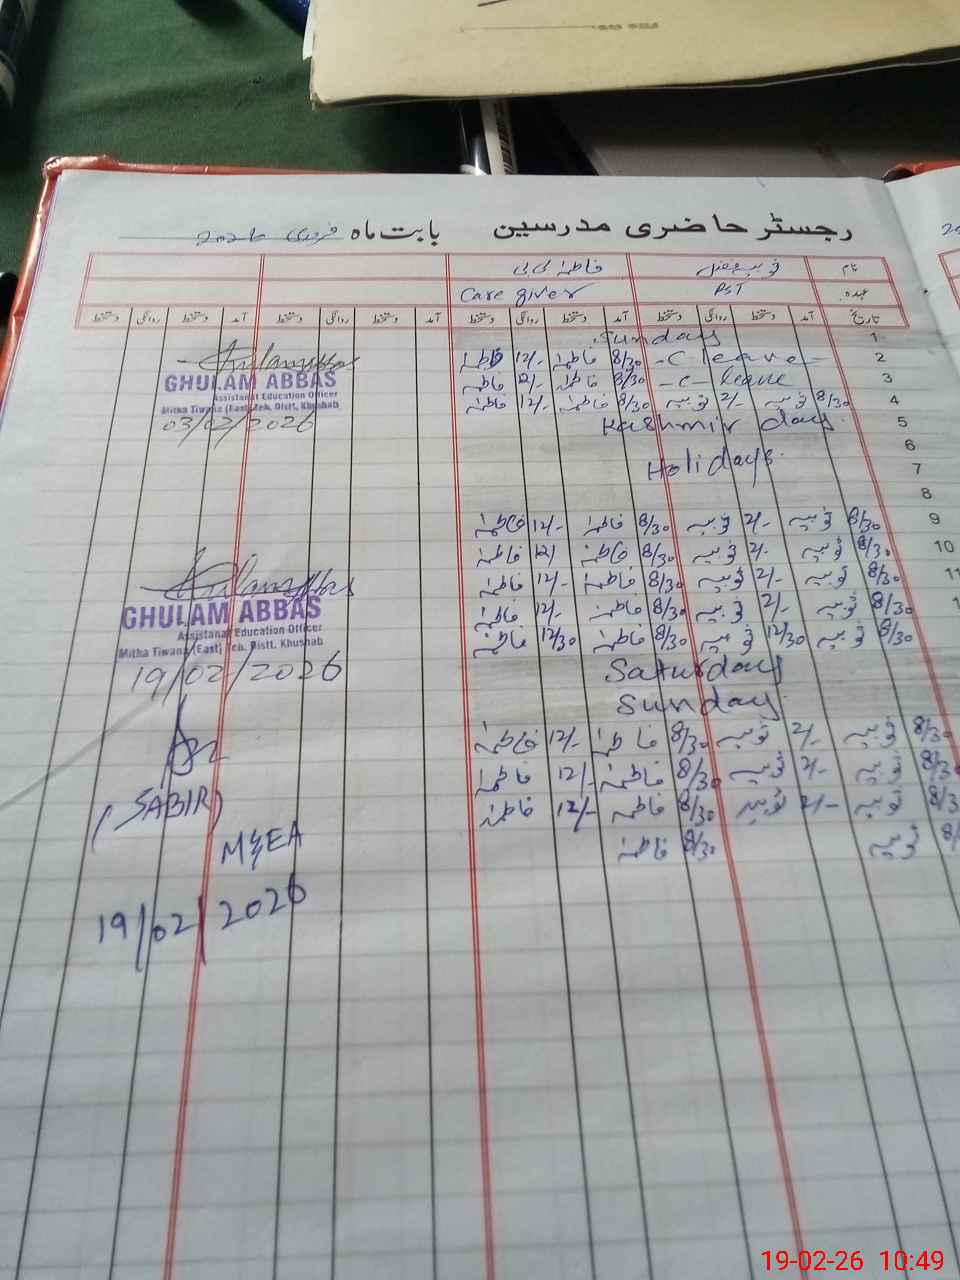 رجسٹر حاضری مدرسین بابت ماہ فروری 2026
نام ثوبیہ فاطمہ بی بی
عہدہ PST Care giver
تاریخ آمد دستخط روانگی دستخط آمد دستخط روانگی دستخط آمد دستخط روانگی دستخط آمد دستخط روانگی دستخط
1 Sunday
2 - C leave - 8/30 فاطمہ 12/- فاطمہ
3 - C - leave 8/30 فاطمہ 12/- فاطمہ
4 8/30 ثوبیہ 2/- ثوبیہ 8/30 فاطمہ 12/- فاطمہ
5 Kashmir day
6
7 Holidays
8
9 8/30 ثوبیہ 2/- ثوبیہ 8/30 فاطمہ 12/- فاطمہ
10 8/30 ثوبیہ 2/- ثوبیہ 8/30 فاطمہ 12/ فاطمہ
11 8/30 ثوبیہ 2/- ثوبیہ 8/30 فاطمہ 12/- فاطمہ
8/30 ثوبیہ 2/- ثوبیہ 8/30 فاطمہ 12/- فاطمہ
8/30 ثوبیہ 12/30 ثوبیہ 8/30 فاطمہ 12/30 فاطمہ
Saturday
Sunday
8/30 ثوبیہ 2/- ثوبیہ 8/30 فاطمہ 12/- فاطمہ
8/30 ثوبیہ 2/- ثوبیہ 8/30 فاطمہ 12/- فاطمہ
8/30 ثوبیہ 2/- ثوبیہ 8/30 فاطمہ 12/- فاطمہ
8/30 ثوبیہ 8/30 فاطمہ
GHULAM ABBAS
Assistant Education Officer
Mitha Tiwana (East) Teh. Distt. Khushab
03/02/2026
GHULAM ABBAS
Assistant Education Officer
Mitha Tiwana (East) Teh. Distt. Khushab
19/02/2026
(SABIR)
M&EA
19/02/2026
19-02-26 10:49